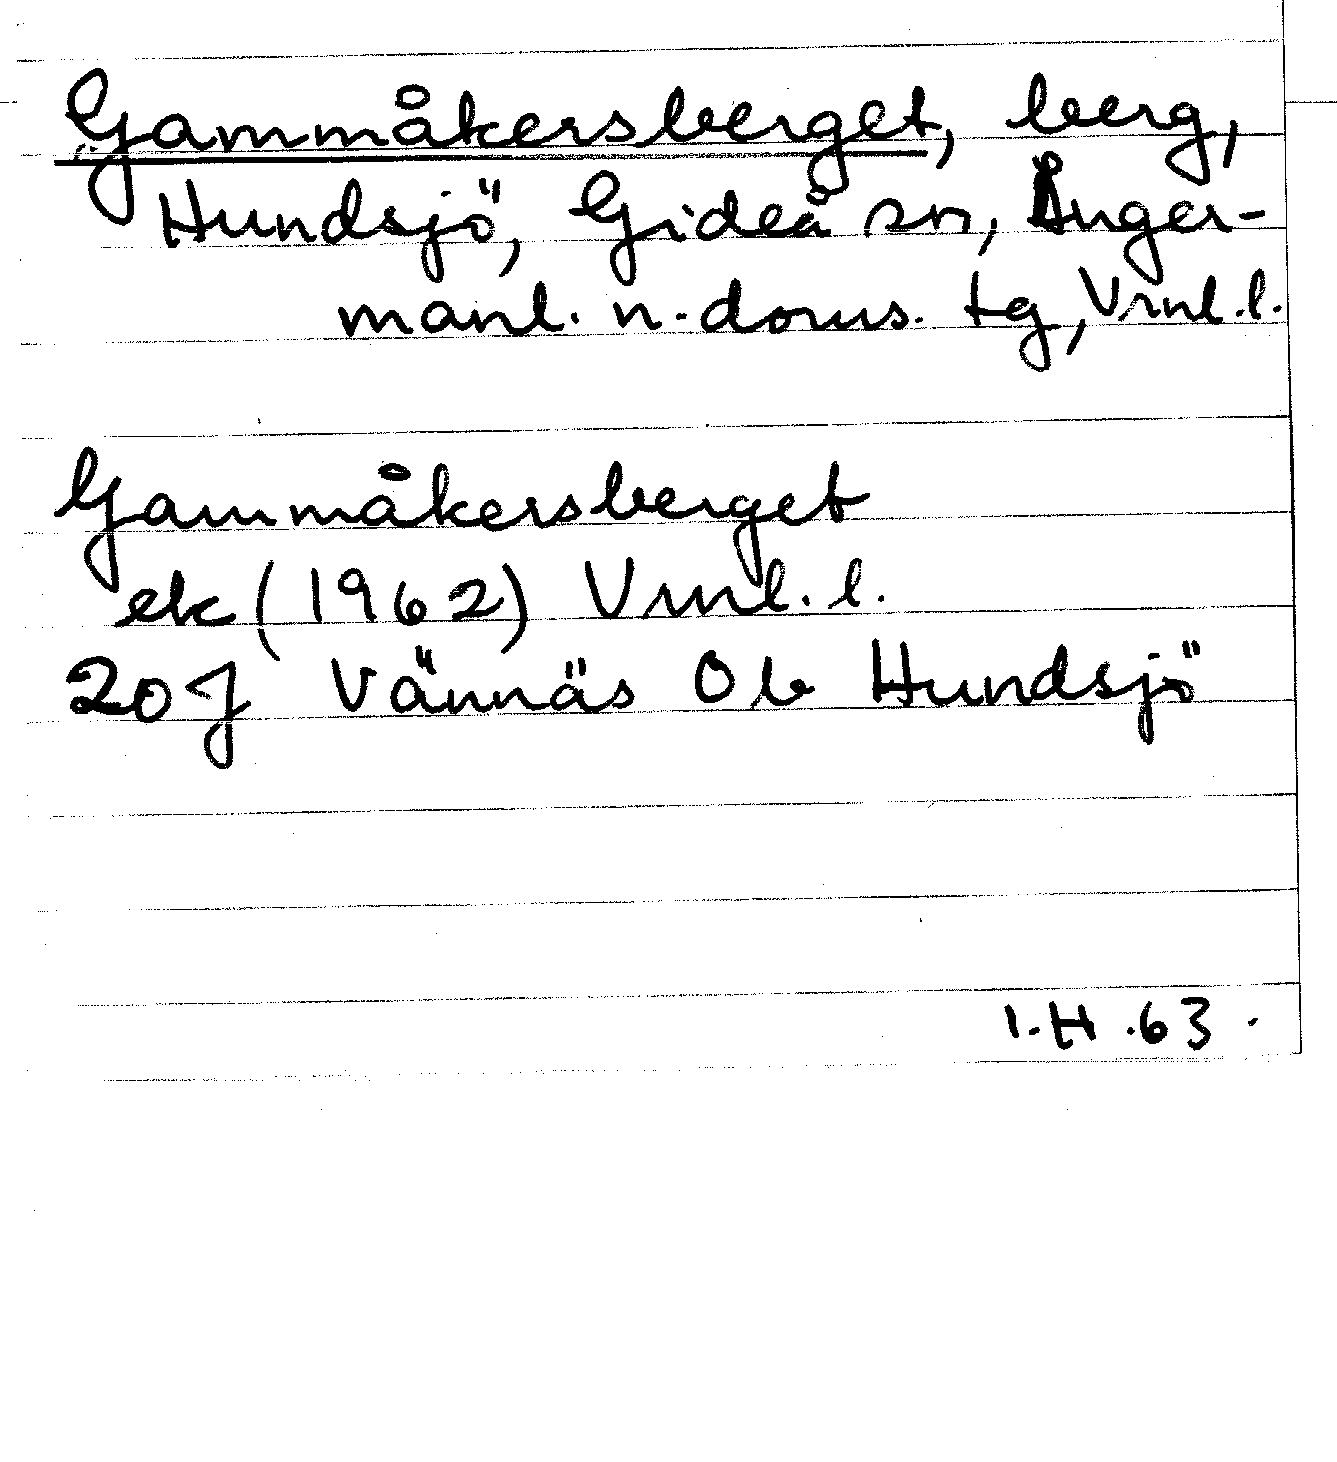 Gammåkersberget, berg,
Hundsjö, Gideå sn, Ånger-
manl. n. doms. tg, Vrnl.l.
Gammåkersberget
ek (1962) Vrnl. l.
20 J Vännäs 0 b Hundsjö
I.H.63.